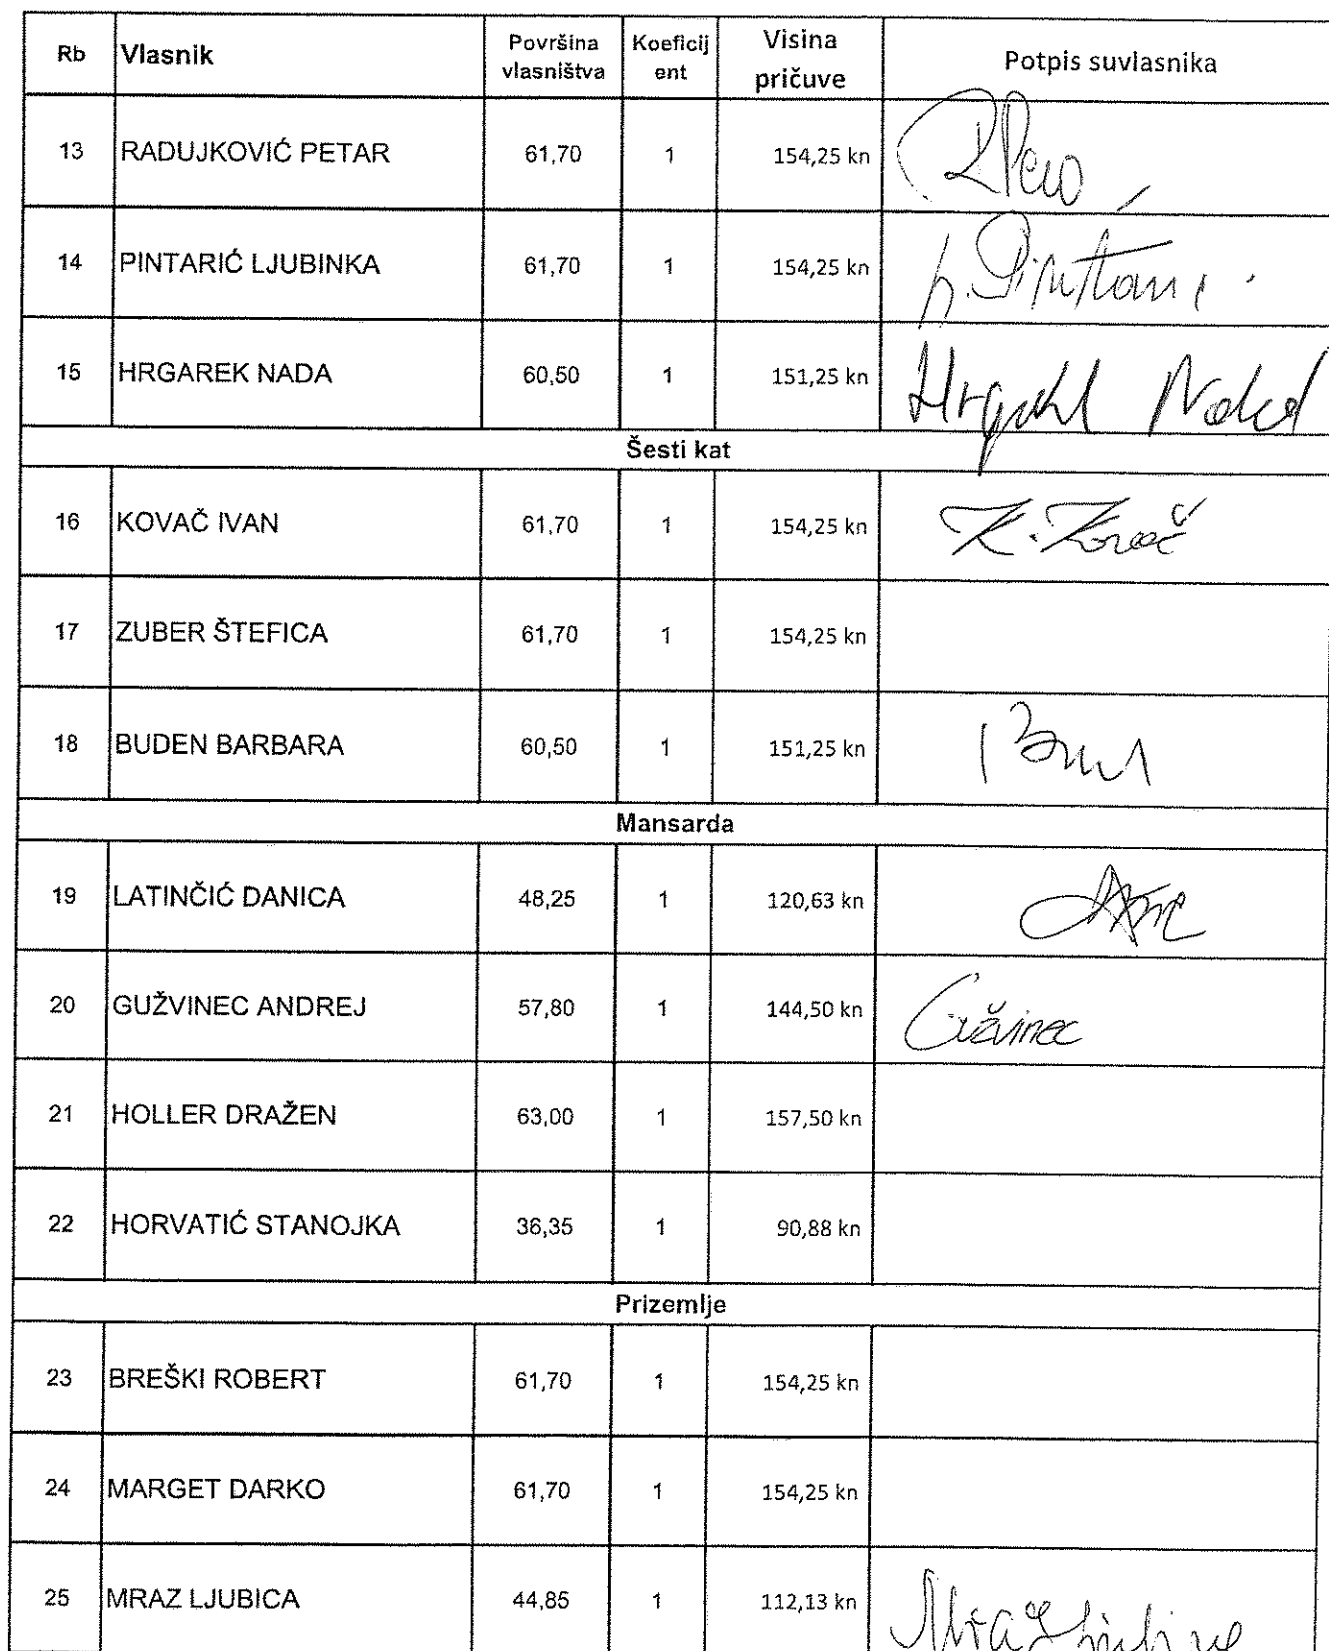 Rb Vlasnik Površina vlasništva Koeficij ent Visina pričuve Potpis suvlasnika
13 RADUJKOVIĆ PETAR 61,70 1 154,25 kn
14 PINTARIĆ LJUBINKA 61,70 1 154,25 kn
15 HRGAREK NADA 60,50 1 151,25 kn
Šesti kat
16 KOVAČ IVAN 61,70 1 154,25 kn K. Kovač
17 ZUBER ŠTEFICA 61,70 1 154,25 kn
18 BUDEN BARBARA 60,50 1 151,25 kn
Mansarda
19 LATINČIĆ DANICA 48,25 1 120,63 kn
20 GUŽVINEC ANDREJ 57,80 1 144,50 kn Gužvinec
21 HOLLER DRAŽEN 63,00 1 157,50 kn
22 HORVATIĆ STANOJKA 36,35 1 90,88 kn
Prizemlje
23 BREŠKI ROBERT 61,70 1 154,25 kn
24 MARGET DARKO 61,70 1 154,25 kn
25 MRAZ LJUBICA 44,85 1 112,13 kn